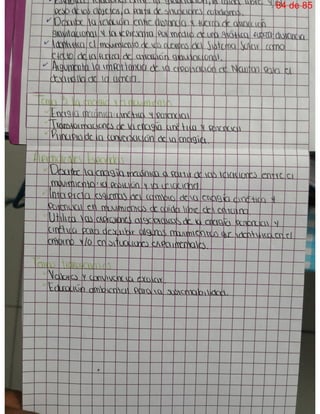 94 de 85
peso de los objetos, a partir de situaciones cotidianas.
✓ Describe la relación entre distancia y fuerza de atracción
gravitacional y la representa por medio de una gráfica fuerza-distancia
✓ Identifica el movimiento de los cuerpos del Sistema Solar como
efecto de la fuerza de atracción gravitacional.
✓ Argumenta la importancia de la aportación de Newton para el
desarrollo de la ciencia.
Energía mecánica cinética y potencial
Transformaciones de la energía cinética y potencial
Principio de la conservación de la energía.
Aprendizajes Esperados
Describe la energía mecánica a partir de las relaciones entre el
movimiento: la posición y la velocidad.
Interpreta esquemas del cambio de la energía cinética y
potencial en movimientos de caída libre del entorno
Utiliza las expresiones algebraicas de la energía potencial y
cinética para describir algunos movimientos que identifica en el
entorno y/o en situaciones experimentales.
Valores y convivencia escolar
Educación ambiental para la sustentabilidad.